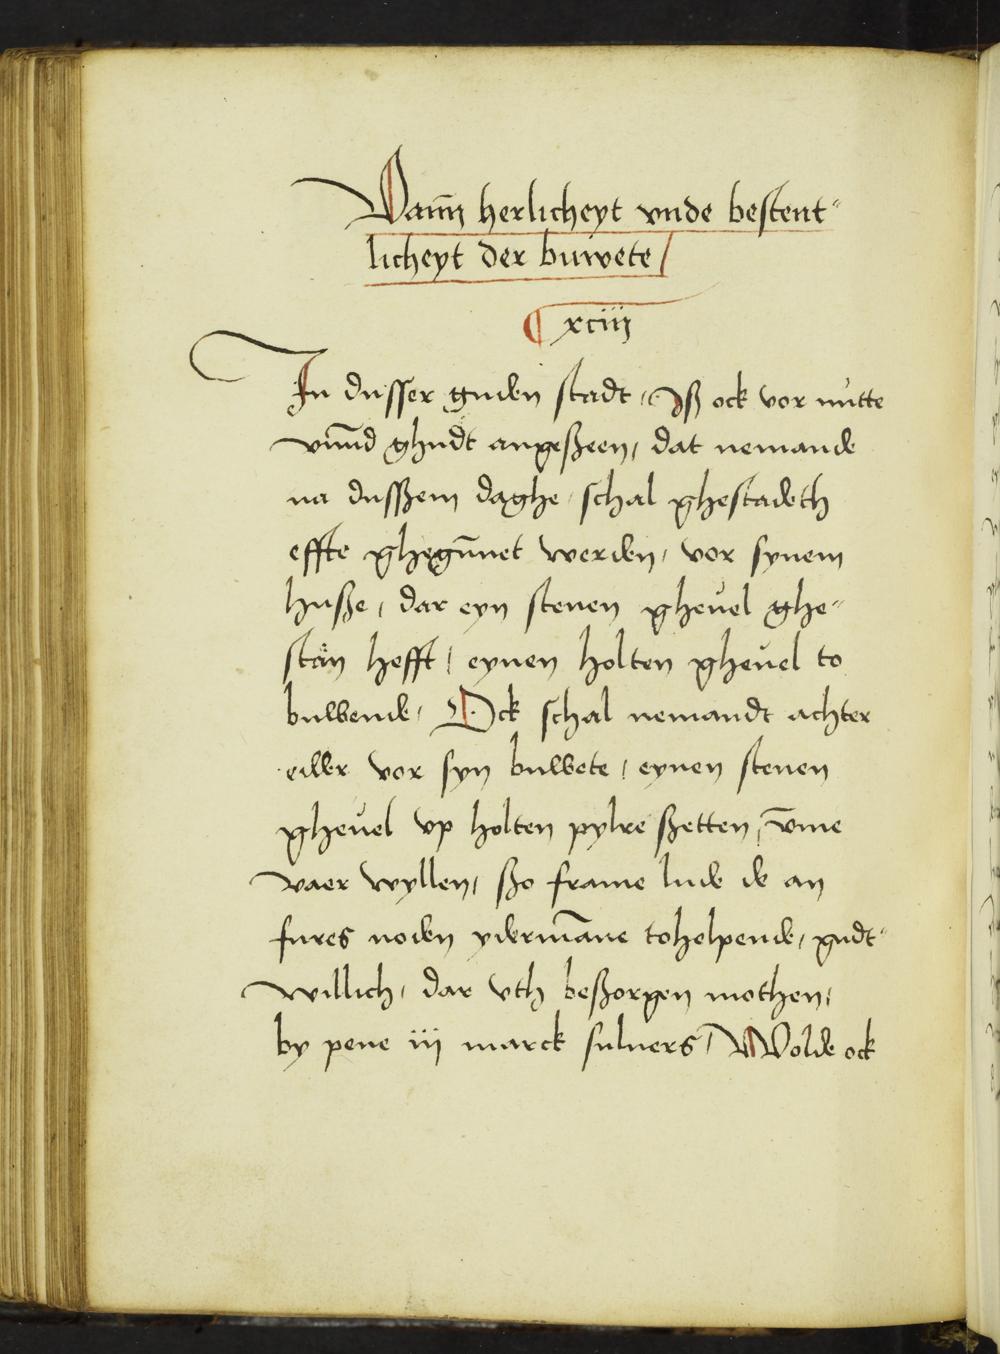 Vann herlicheyt vnde bestent⸗
licheyt der buwete /
¶ xciiij
In dusser guden stadt / Jß ock vor nutte
vnnd ghudt angeßeen / dat nemande
na dussem daghe / schal ghestadeth
effte ghegūnet werden / vor synem
huße / dar eyn stenen gheuel ghe⸗
stan hefft / eynen holten gheuel to
buwende / Ock schal nemandt achter
edder vor syn buwete / eynen stenen
gheuel vp holten pylre ßetten / vme
vaer wyllen / ßo frame lude de an
fures noden ydermāne tohelpende / gudt⸗
willich / dar vth beßorgen mothen /
by pene iij marck suluers / Wolde ock